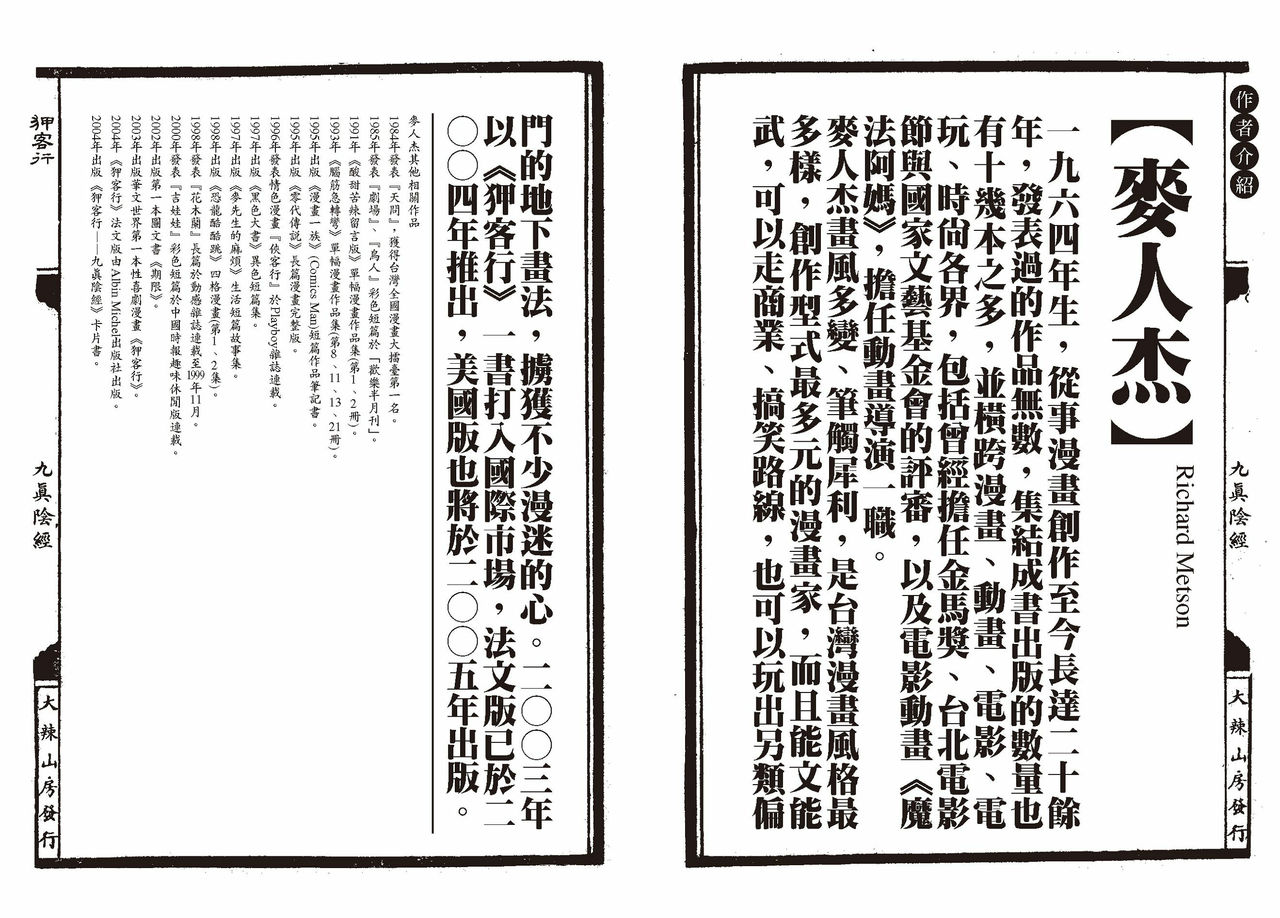 作者介紹
九眞陰經
大辣山房發行
【麥人杰】
Richard Metson
一九六四年生，從事漫畫創作至今長達二十餘
年，發表過的作品無數，集結成書出版的數量也
有十幾本之多，並橫跨漫畫、動畫、電影、電
玩、時尚各界，包括曾經擔任金馬獎、台北電影
節與國家文藝基金會的評審，以及電影動畫《魔
法阿媽》，擔任動畫導演一職。
麥人杰畫風多變、筆觸犀利，是台灣漫畫風格最
多樣，創作型式最多元的漫畫家，而且能文能
武，可以走商業、搞笑路線，也可以玩出另類偏
門的地下畫法，擄獲不少漫迷的心。二〇〇三年
以《狎客行》一書打入國際市場，法文版已於二
〇〇四年推出，美國版也將於二〇〇五年出版。
麥人杰其他相關作品
1984年發表『天問』，獲得台灣全國漫畫大擂臺第一名。
1985年發表『劇場』、『鳥人』彩色短篇於「歡樂半月刊」。
1991年《酸甜苦辣留言版》單幅漫畫作品集(第1、2冊)。
1993年《腦筋急轉彎》單幅漫畫作品集(第8、11、13、21冊)。
1995年出版《漫畫一族》(Comics Man)短篇作品筆記書。
1995年出版《零代傳說》長篇漫畫完整版。
1996年發表情色漫畫『俠客行』於Playboy雜誌連載。
1997年出版《黑色大書》異色短篇集。
1997年出版《麥先生的麻煩》生活短篇故事集。
1998年出版《恐龍酷酷跳》四格漫畫(第1、2集)。
1998年發表『花木蘭』長篇於動感雜誌連載至1999年11月。
2000年發表『吉娃娃』彩色短篇於中國時報趣味休閒版連載。
2002年出版第一本圖文書《期限》。
2003年出版華文世界第一本性喜劇漫畫《狎客行》。
2004年《狎客行》法文版由Albin Michel出版社出版。
2004年出版《狎客行——九眞陰經》卡片書。
狎客行
九眞陰經
大辣山房發行